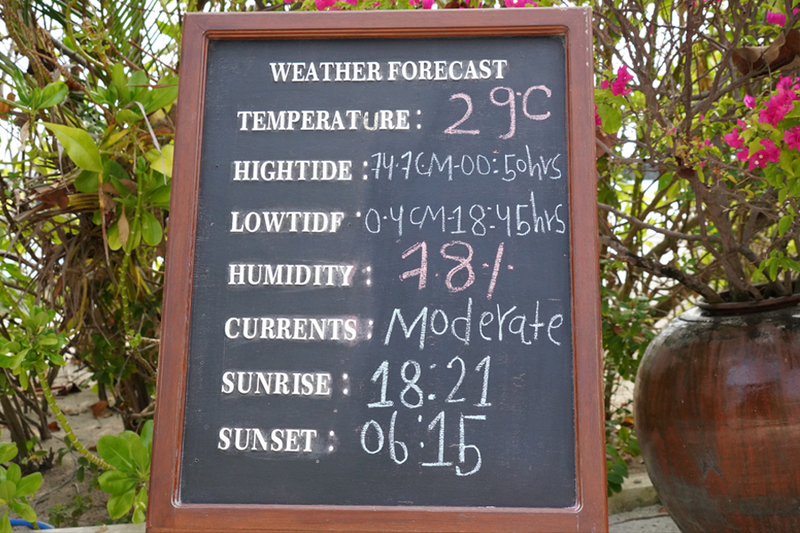 WEATHER FORECAST
TEMPERATURE: 29°C
HIGHTIDE: 74.7CM-00:50hrs
LOWTIDF: 0.4CM-18:45hrs
HUMIDITY: 78%
CURRENTS: Moderate
SUNRISE: 18:21
SUNSET: 06:15